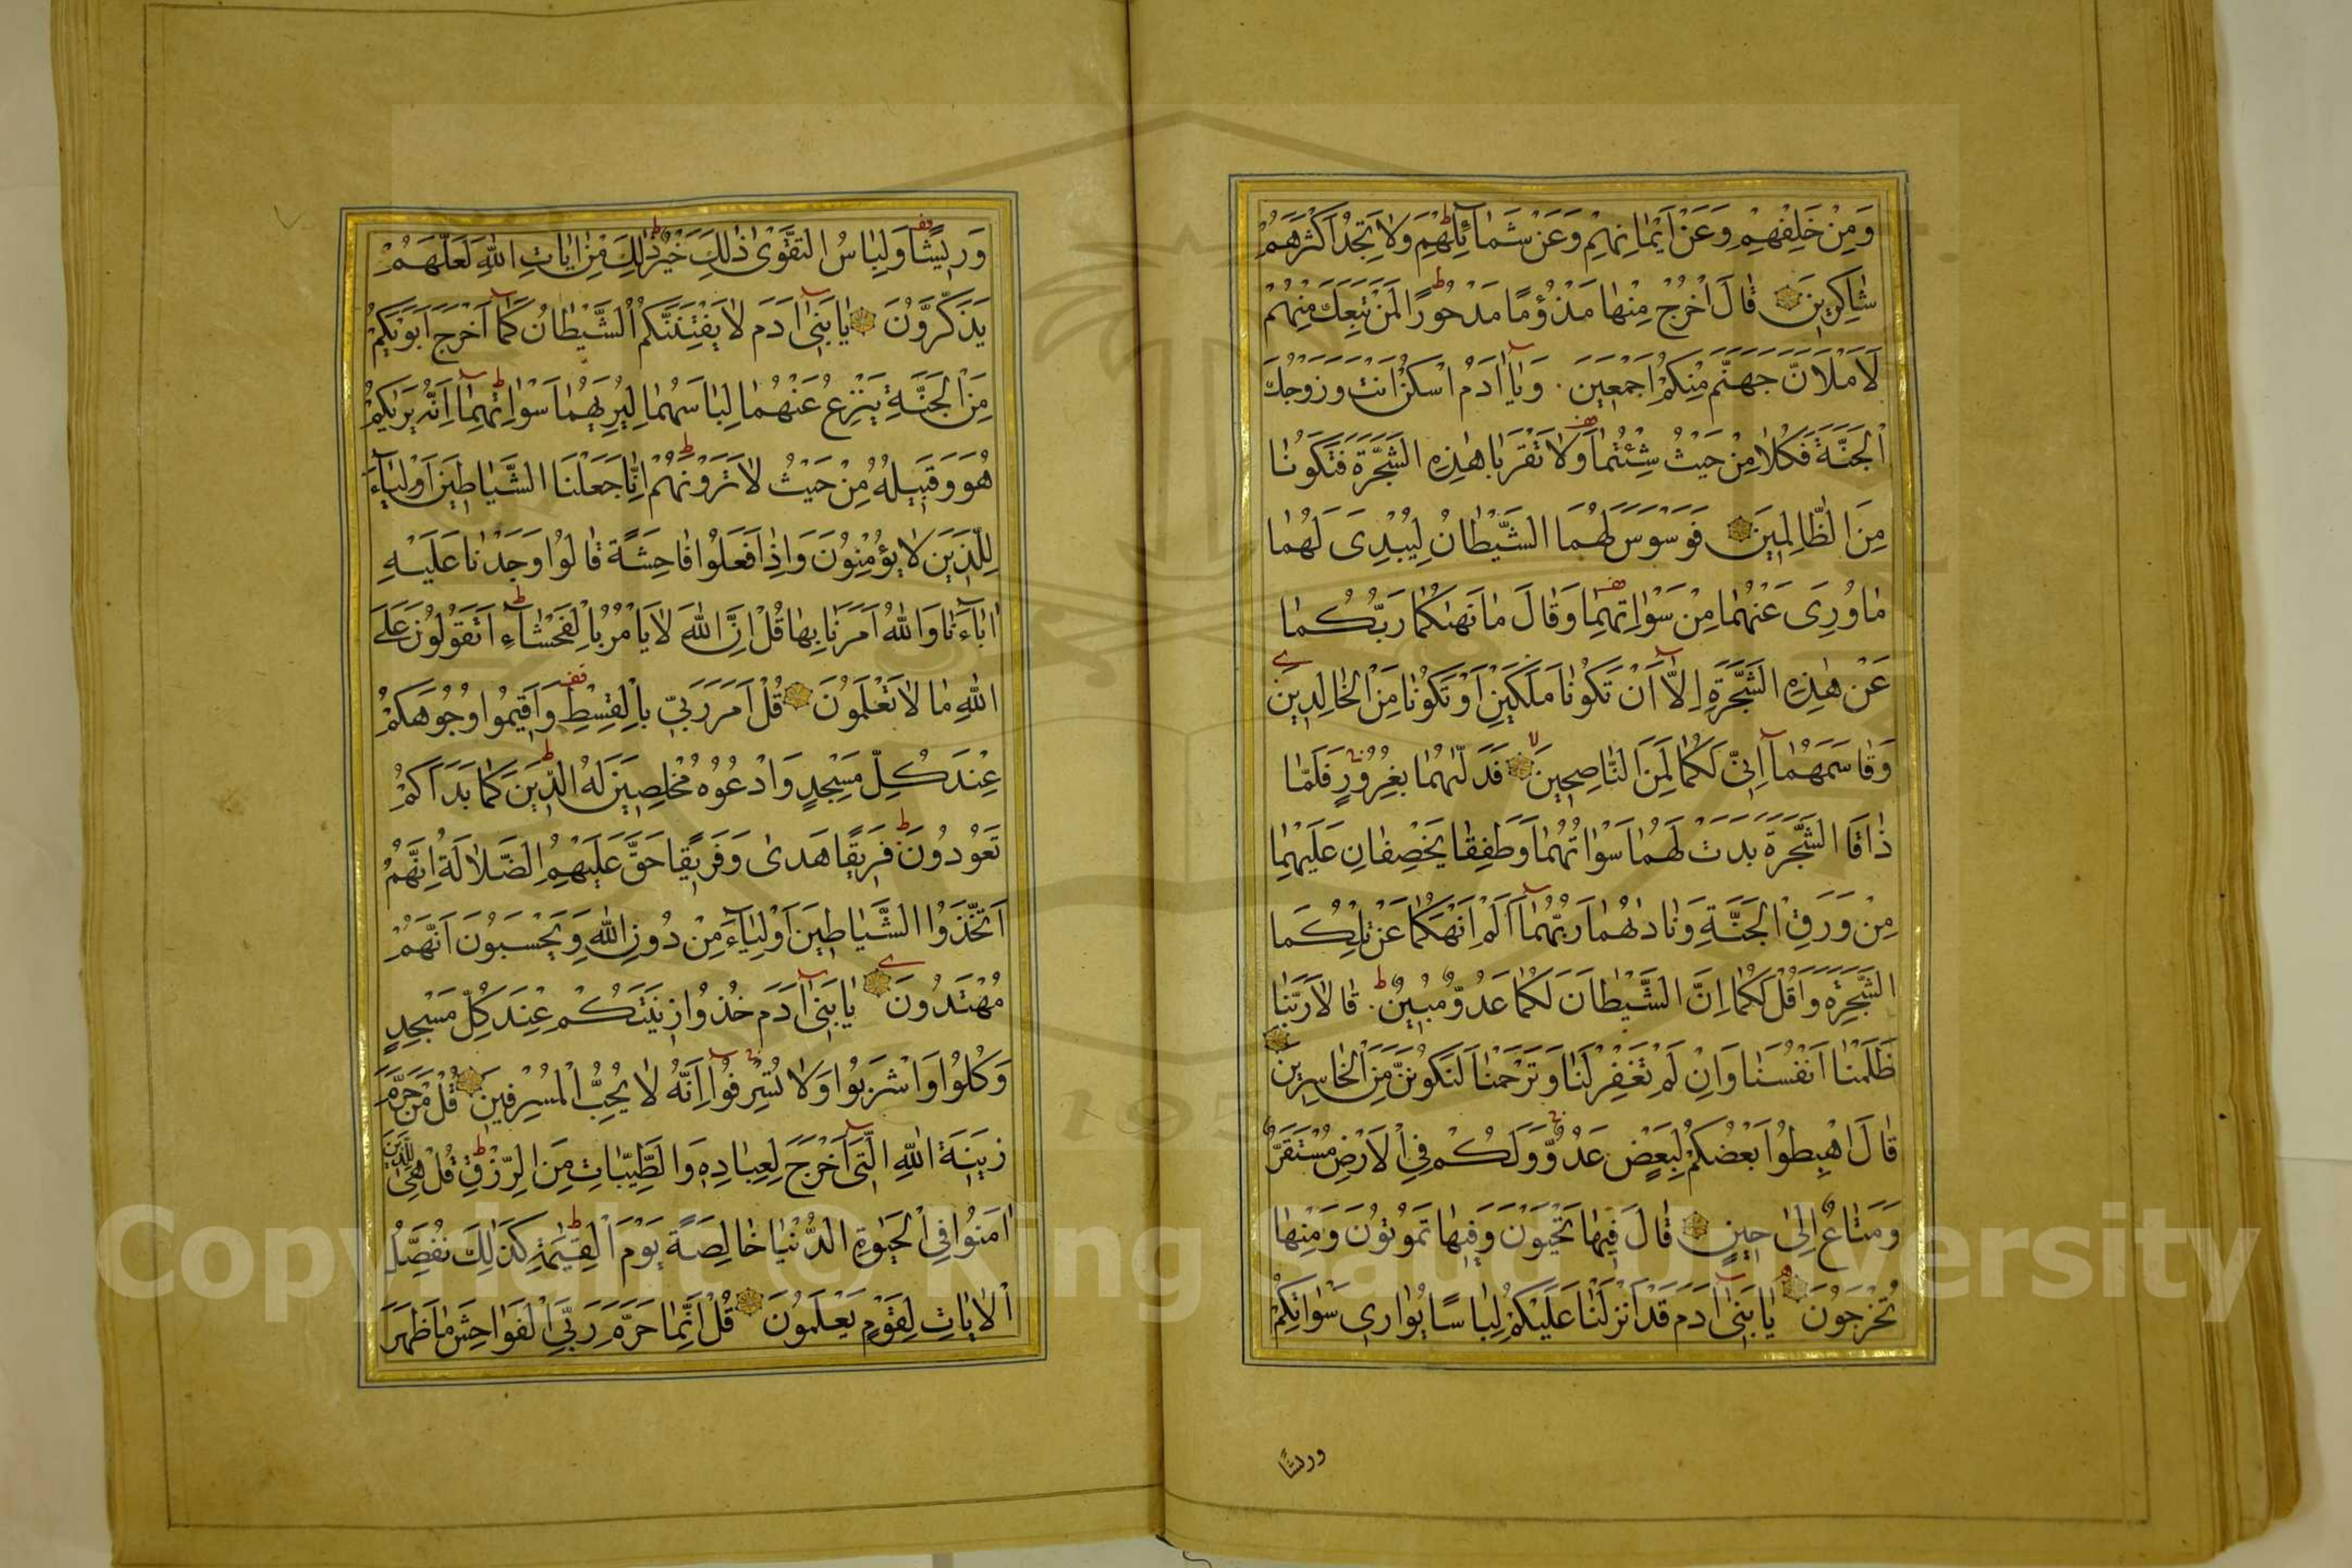 وَمِنْ خَلْفِهِمْ وَعَنْ اَيْمَانِهِمْ وَعَنْ شَمَآئِلِهِمْ وَلَا تَجِدُ اَكْثَرَهُمْ
شَاكِرِينَ قَالَ اخْرُجْ مِنْهَا مَذْؤُمًا مَدْحُورًا لَمَنْ تَبِعَكَ مِنْهُمْ
لَاَمْلَاَنَّ جَهَنَّمَ مِنْكُمْ اَجْمَعِينَ . وَيَآ اٰدَمُ اسْكُنْ اَنْتَ وَزَوْجُكَ
الْجَنَّةَ فَكُلَا مِنْ حَيْثُ شِئْتُمَا وَلَا تَقْرَبَا هٰذِهِ الشَّجَرَةَ فَتَكُونَا
مِنَ الظَّالِمِينَ فَوَسْوَسَ لَهُمَا الشَّيْطَانُ لِيُبْدِىَ لَهُمَا
مَا وُرِىَ عَنْهُمَا مِنْ سَوْاٰتِهِمَا وَقَالَ مَا نَهٰىكُمَا رَبُّكُمَا
عَنْ هٰذِهِ الشَّجَرَةِ اِلَّآ اَنْ تَكُونَا مَلَكَيْنِ اَوْ تَكُونَا مِنَ الْخَالِدِينَ
وَقَاسَمَهُمَآ اِنِّى لَكُمَا لَمِنَ النَّاصِحِينَ فَدَلّٰىهُمَا بِغُرُورٍ فَلَمَّا
ذَاقَا الشَّجَرَةَ بَدَتْ لَهُمَا سَوْاٰتُهُمَا وَطَفِقَا يَخْصِفَانِ عَلَيْهِمَا
مِنْ وَرَقِ الْجَنَّةِ وَنَادٰىهُمَا رَبُّهُمَآ اَلَمْ اَنْهَكُمَا عَنْ تِلْكُمَا
الشَّجَرَةِ وَاَقُلْ لَكُمَا اِنَّ الشَّيْطَانَ لَكُمَا عَدُوٌّ مُبِينٌ . قَالَا رَبَّنَا
ظَلَمْنَا اَنْفُسَنَا وَاِنْ لَمْ تَغْفِرْ لَنَا وَتَرْحَمْنَا لَنَكُونَنَّ مِنَ الْخَاسِرِينَ
قَالَ اهْبِطُوا بَعْضُكُمْ لِبَعْضٍ عَدُوٌّ وَلَكُمْ فِى الْاَرْضِ مُسْتَقَرٌّ
وَمَتَاعٌ اِلٰى حِينٍ قَالَ فِيهَا تَحْيَوْنَ وَفِيهَا تَمُوتُونَ وَمِنْهَا
تُخْرَجُونَ يَا بَنِىٓ اٰدَمَ قَدْ اَنْزَلْنَا عَلَيْكُمْ لِبَاسًا يُوَارِى سَوْاٰتِكُمْ
وريشًا
وَرِيشًا وَلِبَاسُ التَّقْوٰى ذٰلِكَ خَيْرٌ ذٰلِكَ مِنْ اٰيَاتِ اللّٰهِ لَعَلَّهُمْ
يَذَّكَّرُونَ يَا بَنِىٓ اٰدَمَ لَا يَفْتِنَنَّكُمُ الشَّيْطَانُ كَمَآ اَخْرَجَ اَبَوَيْكُمْ
مِنَ الْجَنَّةِ يَنْزِعُ عَنْهُمَا لِبَاسَهُمَا لِيُرِيَهُمَا سَوْاٰتِهِمَآ اِنَّهُ يَرٰيكُمْ
هُوَ وَقَبِيلُهُ مِنْ حَيْثُ لَا تَرَوْنَهُمْ اِنَّا جَعَلْنَا الشَّيَاطِينَ اَوْلِيَآءَ
لِلَّذِينَ لَا يُؤْمِنُونَ وَاِذَا فَعَلُوا فَاحِشَةً قَالُوا وَجَدْنَا عَلَيْهِ
اٰبَآءَنَا وَاللّٰهُ اَمَرَنَا بِهَا قُلْ اِنَّ اللّٰهَ لَا يَاْمُرُ بِالْفَحْشَآءِ اَتَقُولُونَ عَلَى
اللّٰهِ مَا لَا تَعْلَمُونَ قُلْ اَمَرَ رَبِّى بِالْقِسْطِ وَاَقِيمُوا وُجُوهَكُمْ
عِنْدَ كُلِّ مَسْجِدٍ وَادْعُوهُ مُخْلِصِينَ لَهُ الدِّينَ كَمَا بَدَاَكُمْ
تَعُودُونَ فَرِيقًا هَدٰى وَفَرِيقًا حَقَّ عَلَيْهِمُ الضَّلَالَةُ اِنَّهُمُ
اتَّخَذُوا الشَّيَاطِينَ اَوْلِيَآءَ مِنْ دُونِ اللّٰهِ وَيَحْسَبُونَ اَنَّهُمْ
مُهْتَدُونَ يَا بَنِىٓ اٰدَمَ خُذُوا زِينَتَكُمْ عِنْدَ كُلِّ مَسْجِدٍ
وَكُلُوا وَاشْرَبُوا وَلَا تُسْرِفُوٓا اِنَّهُ لَا يُحِبُّ الْمُسْرِفِينَ قُلْ مَنْ حَرَّمَ
زِينَةَ اللّٰهِ الَّتِىٓ اَخْرَجَ لِعِبَادِهِ وَالطَّيِّبَاتِ مِنَ الرِّزْقِ قُلْ هِىَ لِلَّذِينَ
اٰمَنُوا فِى الْحَيٰوةِ الدُّنْيَا خَالِصَةً يَوْمَ الْقِيٰمَةِ كَذٰلِكَ نُفَصِّلُ
الْاٰيَاتِ لِقَوْمٍ يَعْلَمُونَ قُلْ اِنَّمَا حَرَّمَ رَبِّىَ الْفَوَاحِشَ مَا ظَهَرَ
Copyright © King Saud University